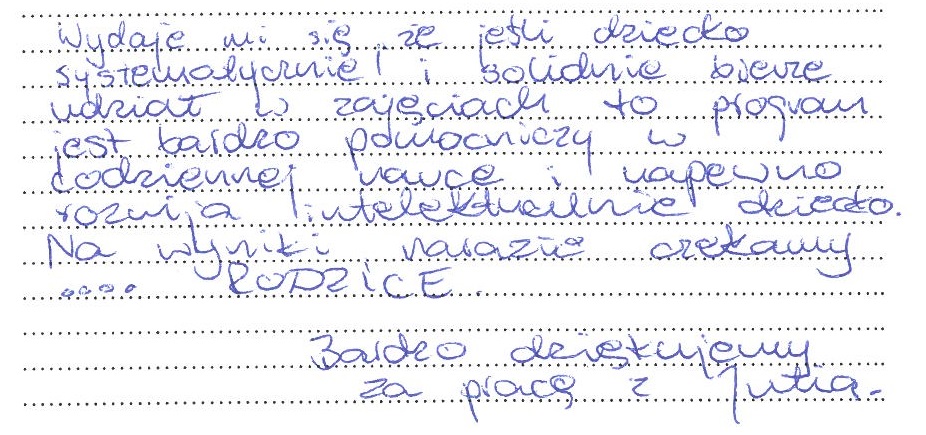 Wydaje mi się, że jeśli dziecko
systematycznie i solidnie bierze
udział w zajęciach to program
jest bardzo pomocniczy w
codziennej nauce i napewno
rozwija intelektualnie dziecko.
Na wyniki narazie czekamy
.... RODZICE.
Bardzo dziękujemy
za pracę z Julią.